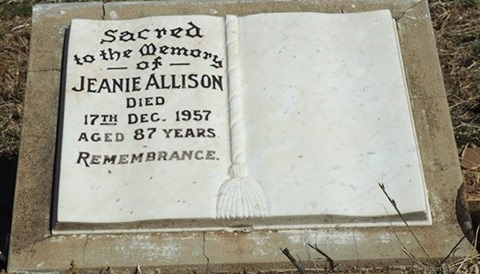 Sacred
to the Memory
— of —
JEANIE ALLISON
DIED
17TH DEC. 1957
AGED 87 YEARS.
REMEMBRANCE.